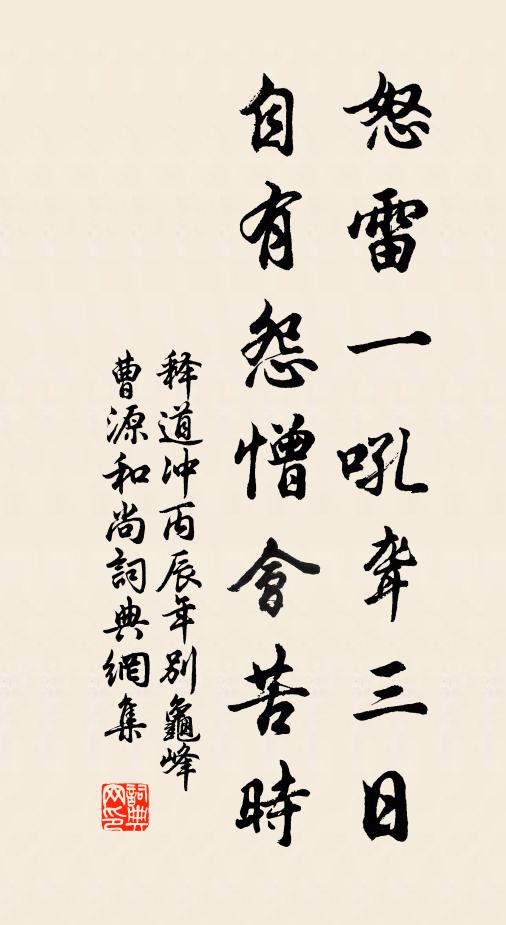 怒雷一吼聋三日
自有怨憎會苦時
释道冲丙辰年别龜峰
曹源和尚詞典網集
詞典网印